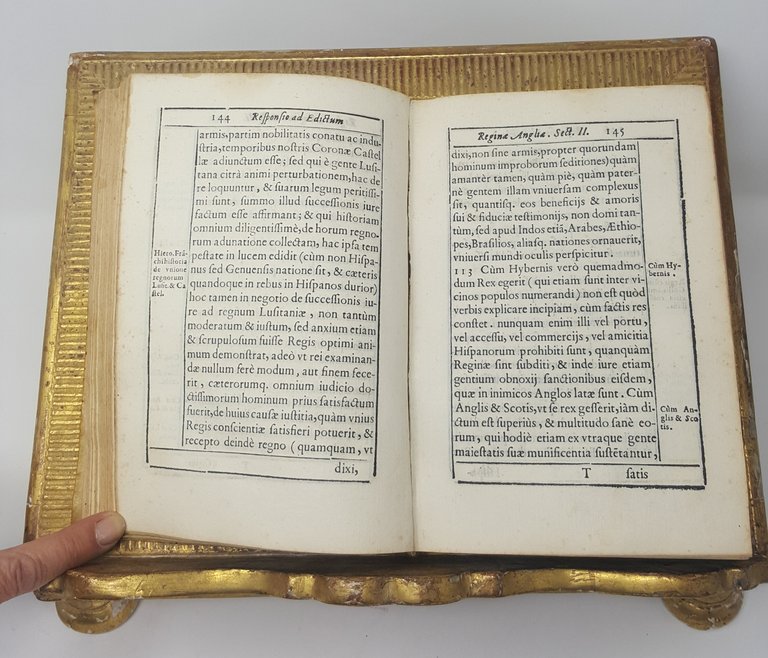 144 Responsio ad Edictum
armis, partim nobilitatis conatu ac indu-
stria, temporibus nostris Coronæ Castel
læ adiunctum esse; sed qui è gente Lusi-
tana citrà animi perturbationem, hac de
re loquuntur, & suarum legum peritissi-
mi sunt, summo illud successionis iure
factum esse affirmant; & qui historiam
omnium diligentissimè, de horum regno-
rum adunatione collectam, hac ipsa tem
pestate in lucem edidit (cùm non Hispa-
nus sed Genuensis natione sit, & cæteris
quandoque in rebus in Hispanos durior)
hoc tamen in negotio de successionis iu-
re ad regnum Lusitaniæ, non tantùm
moderatum & iustum, sed anxium etiam
& scrupulosum fuisse Regis optimi ani-
mum demonstrat, adeò vt rei examinan-
dæ nullum ferè modum, aut finem fece-
rit, cæterorumq. omnium iudicio do-
ctissimorum hominum prius satisfactum
fuerit, de huius causæ iustitia, quàm vnius
Regis conscientiæ satisfieri potuerit, &
recepto deindè regno (quamquam, vt
dixi,
Hiero. Frã-
chi historia
de vnione
regnorum
Lusit. & Ca
stel.
Reginæ Angliæ. Sect. II. 145
dixi, non sine armis, propter quorundam
hominum improborum seditiones) quàm
amantèr tamen, quàm piè, quàm pater-
nè gentem illam vniuersam complexus
sit, quantisq. eos beneficijs & amoris
sui & fiduciæ testimonijs, non domi tan-
tùm, sed apud Indos etiã, Arabes, Æthio-
pes, Brasilios, aliasq. nationes ornauerit,
vniuersi mundi oculis perspicitur.
113 Cùm Hybernis verò quemadmo-
dum Rex egerit (qui etiam sunt inter vi-
cinos populos numerandi) non est quòd
verbis explicare incipiam, cùm factis res
constet. nunquam enim illi vel portu,
vel accessu, vel commercijs, vel amicitia
Hispanorum prohibiti sunt, quanquàm
Reginæ sint subditi, & inde iure etiam
gentium obnoxij sanctionibus eisdem,
quæ in inimicos Anglos latæ sunt. Cùm
Anglis & Scotis, vt se rex gesserit, iàm di-
ctum est superiùs, & multitudo sanè eo-
rum, qui hodiè etiam ex vtraque gente
maiestatis suæ munificentia sustẽtantur,
T satis
Cùm Hy-
bernis.
Cùm An-
glis & Sco
tis.